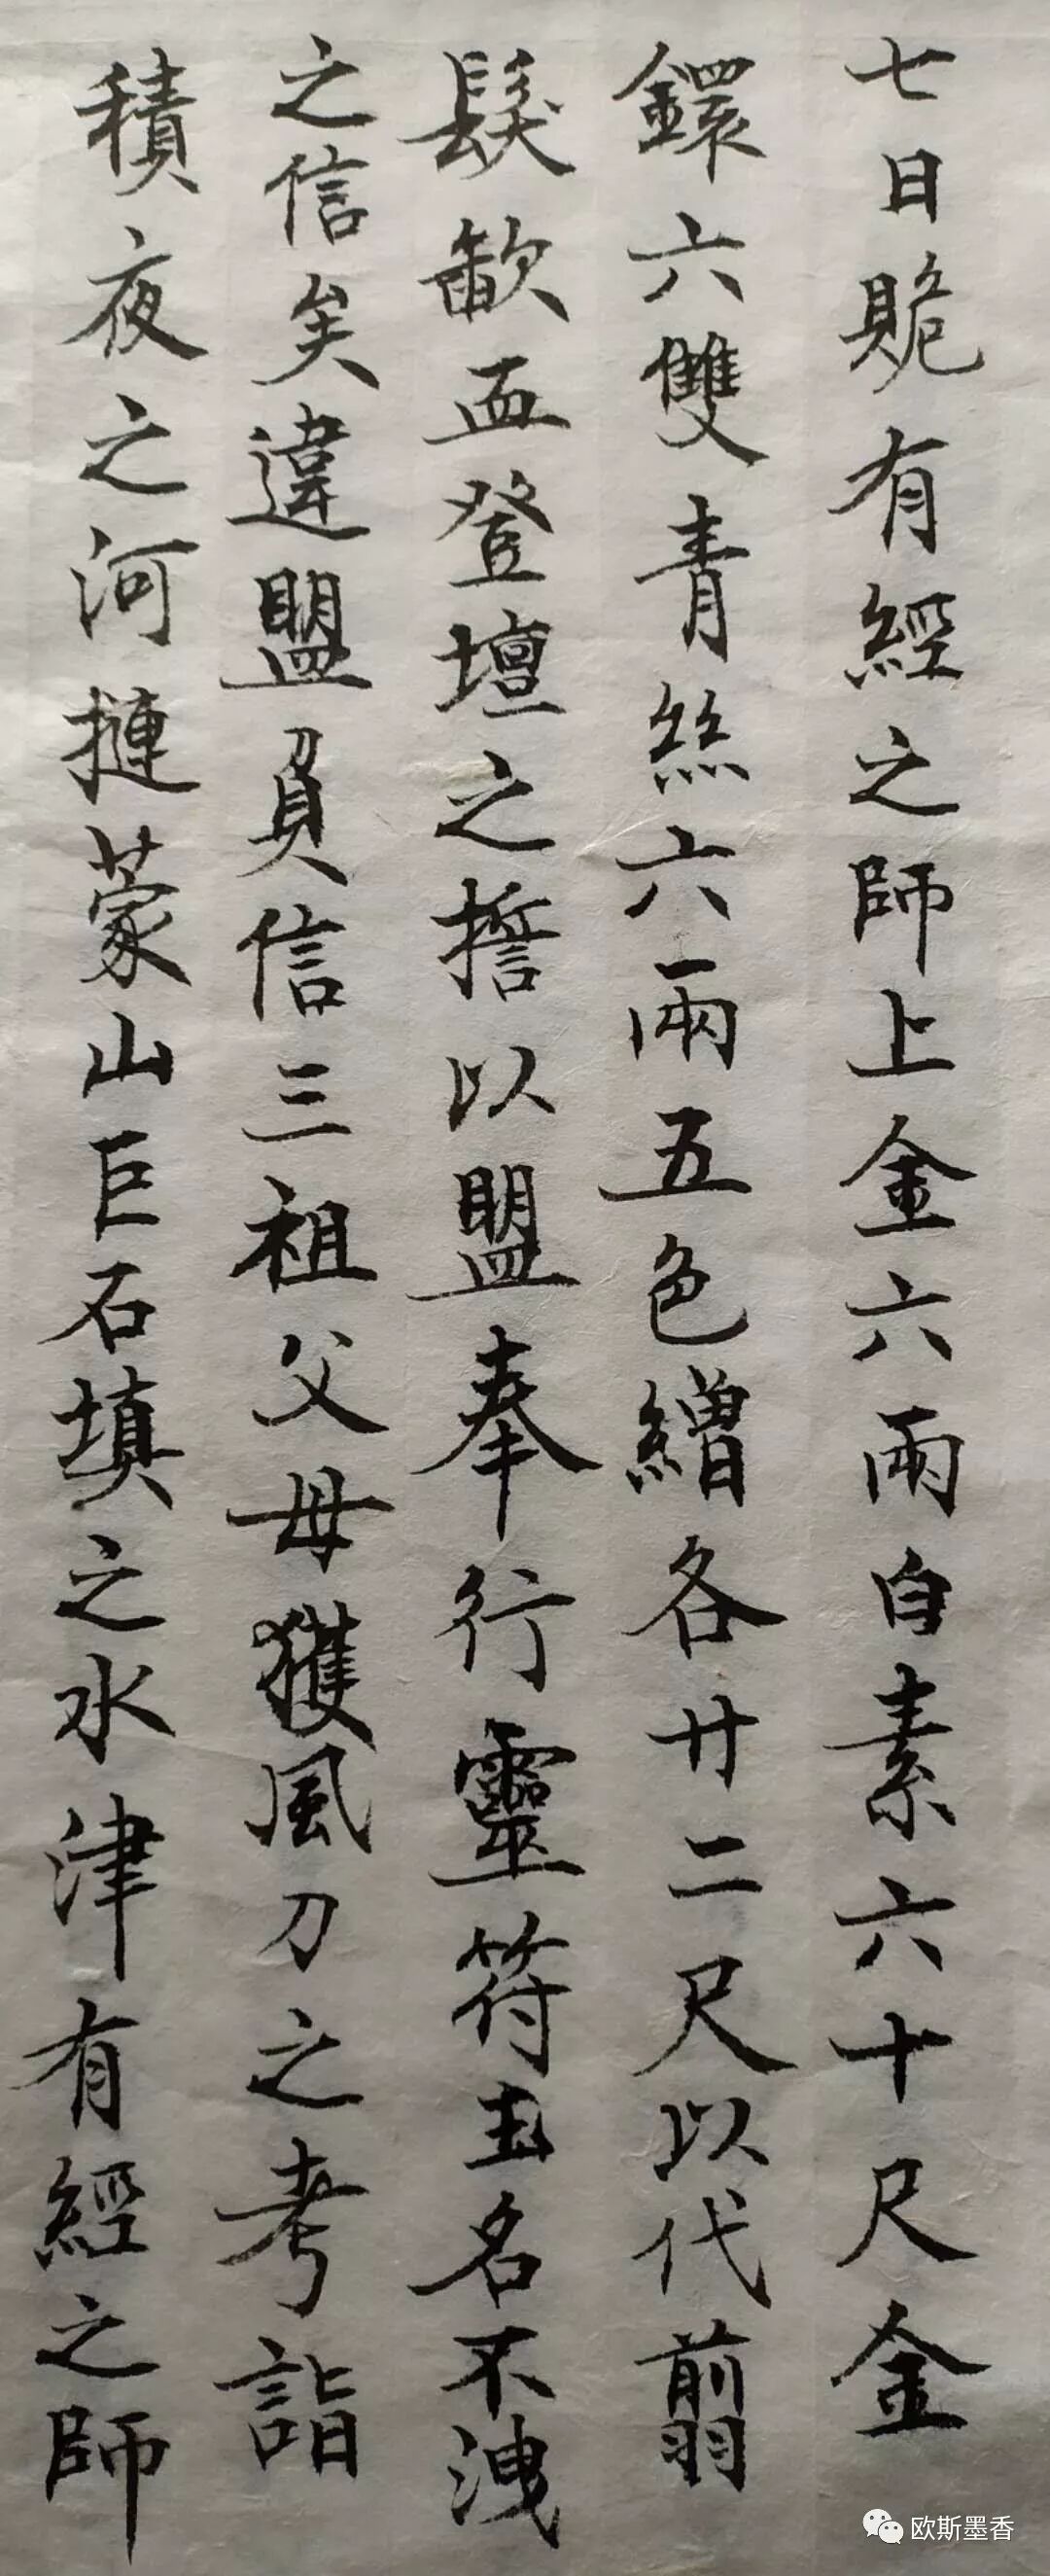 七日賝有經之師上金六兩白素六十尺金
鐶六雙青絲六兩五色繒各廿二尺以代翦
髮歃血登壇之誓以盟奉行靈符玉名不洩
之信矣違盟負信三祖父母獲風刀之考詣
積夜之河摙蒙山巨石填之水津有經之師
欧斯墨香